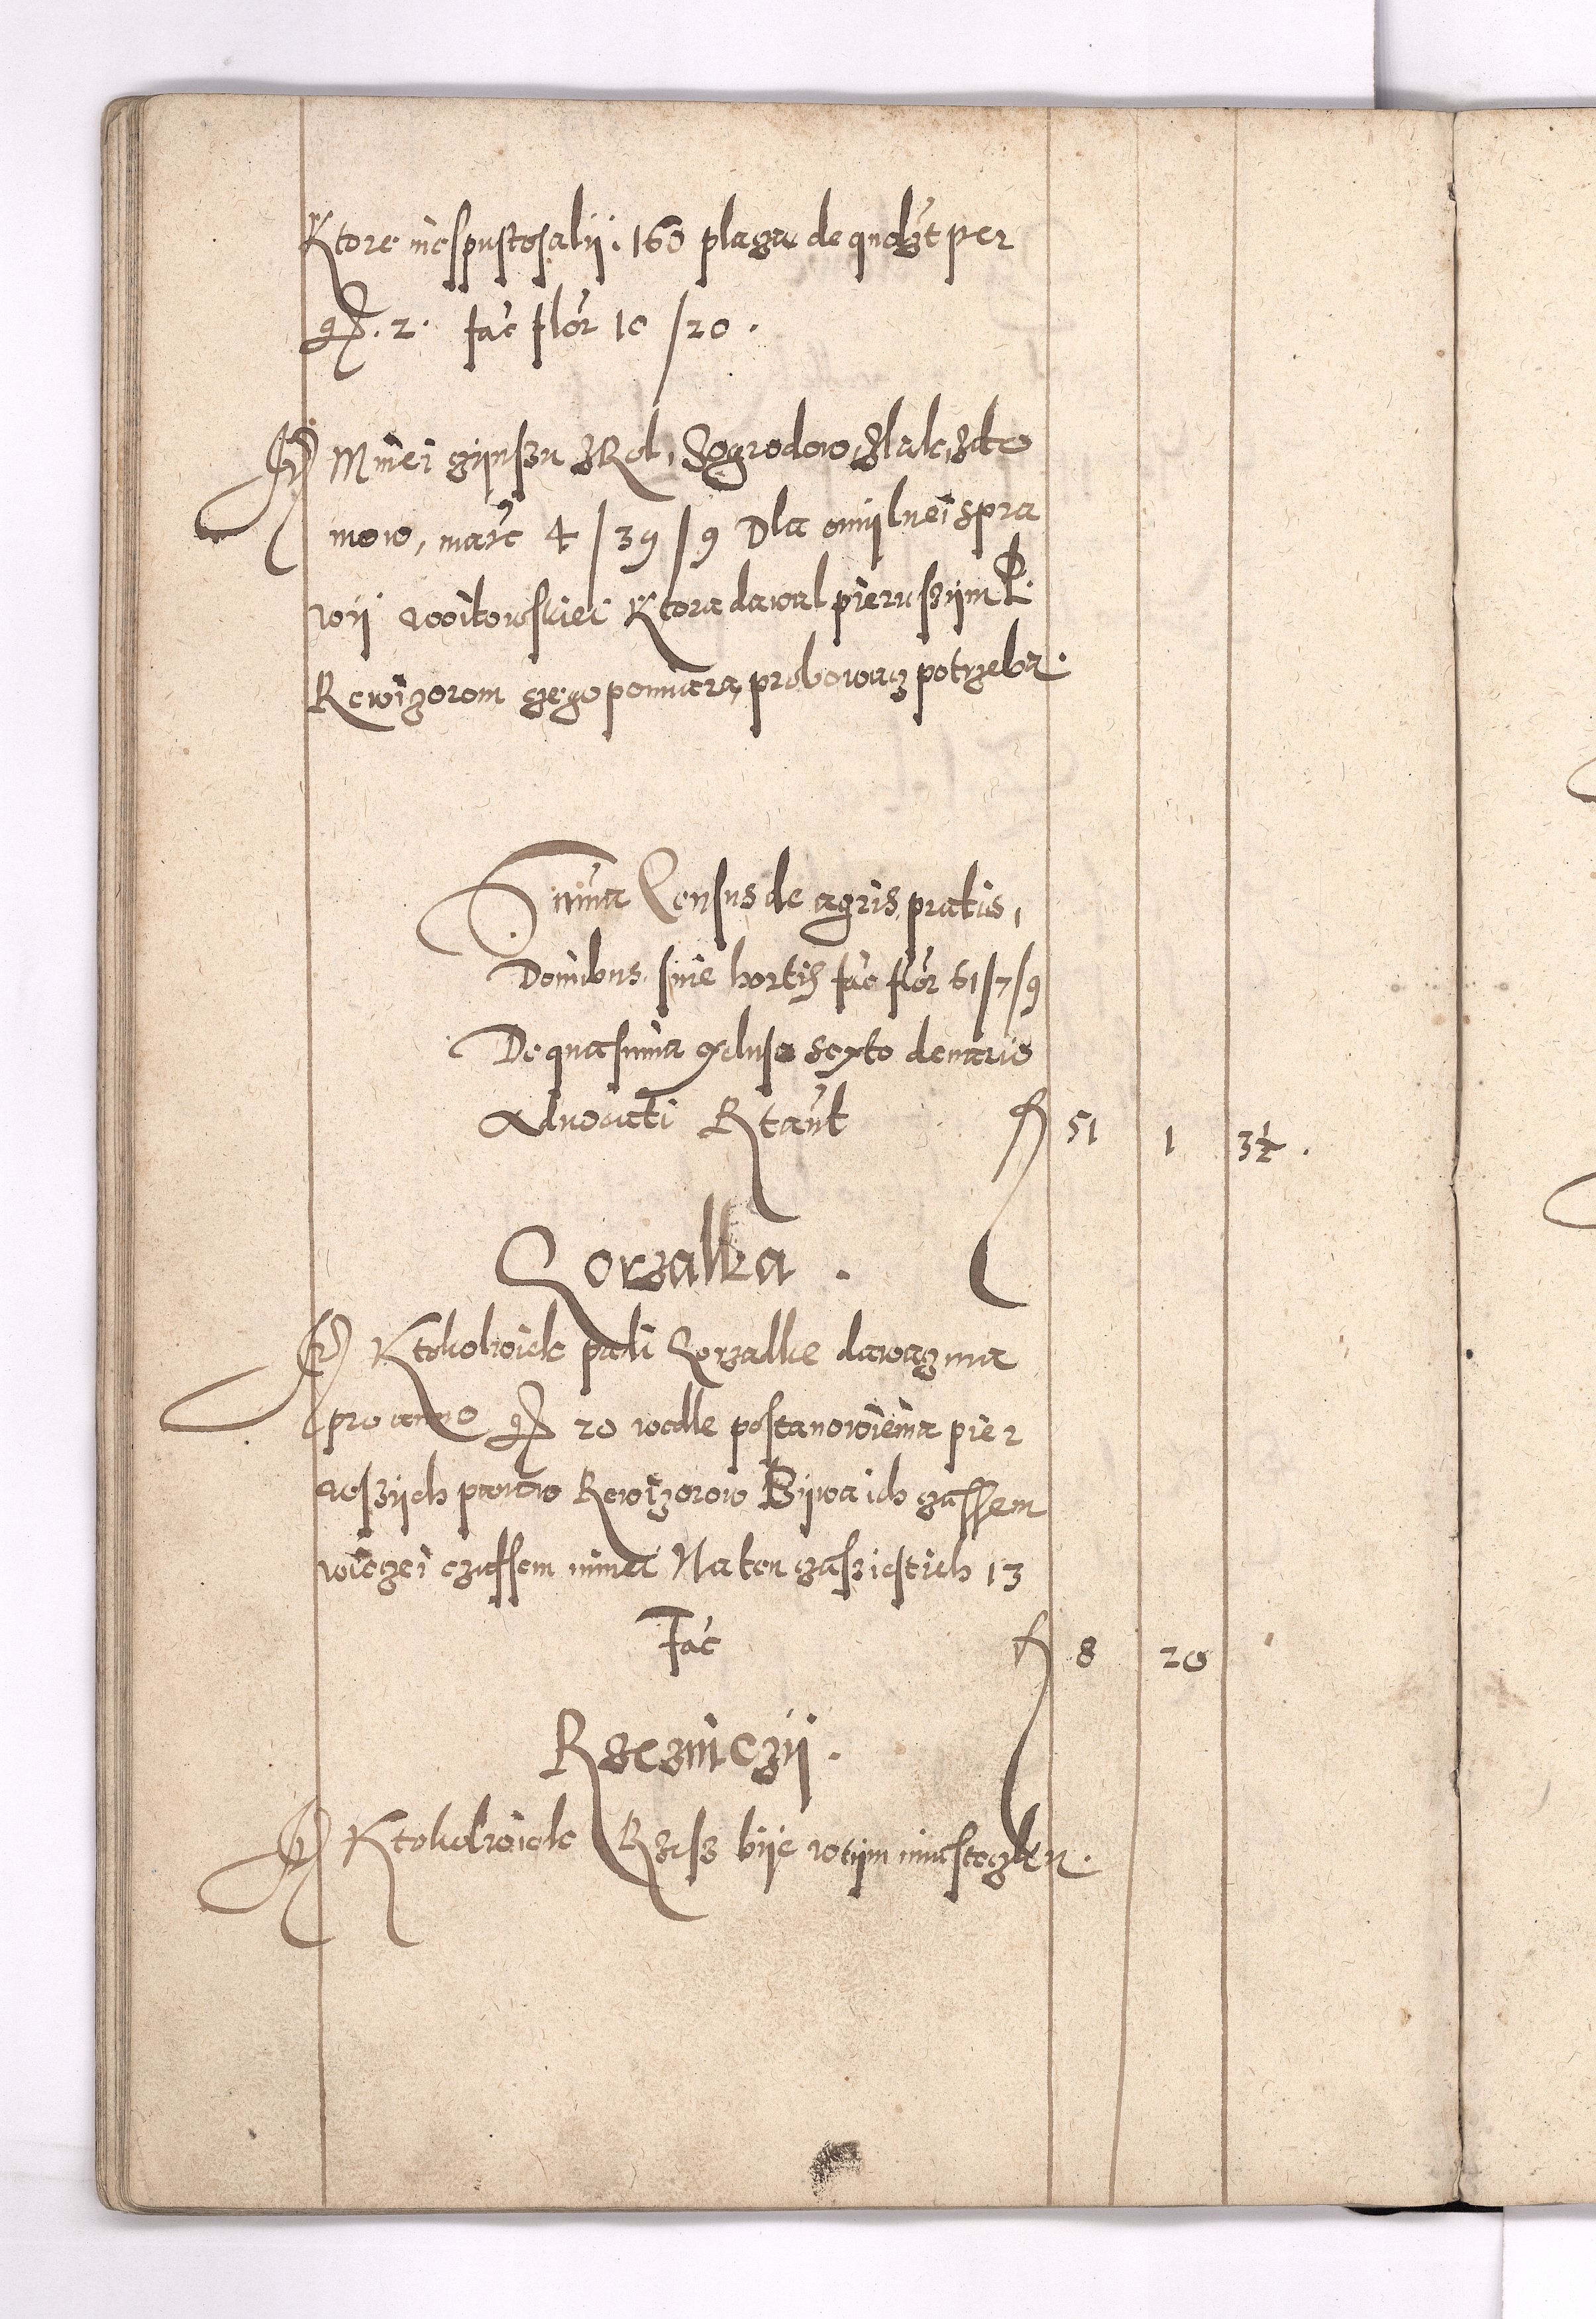 Ktore niespustosalij. 160 plaga de qūolz̄t per
gr. 2. fac̄ flor̄ 10 /20.
It Mniei czijnszu z Rol, Zogrodow, z lak, z do
mow, marc̄ 4 /39 /9 Dla omijlnei spra
wij woitowskiei Ktora dawal pierwszijm P.
Rewizorom czego ponniera, probowacz potrzeba.
Sum̄a Census de agris, pratis,
Domibus, siue hortis fac̄ flor̄ 61/7/9
De qua sum̄a excluso sexto denario
Aduocati Rtan̄t fl 51 1 3½.
Gorzalka.
It Ktokolwiek pali Gorzalke dawacz ma
pro anno gr 20 wedle postanowienia pier
wszijch panow Rewizorow Bijwa ich czassem
wieczei czassem mniei Na ten czasz iest ich 13
Fac̄ fl 8 20
Rzezniczij.
It Ktokolwiek Rzesz bije w tijm miasteczku.